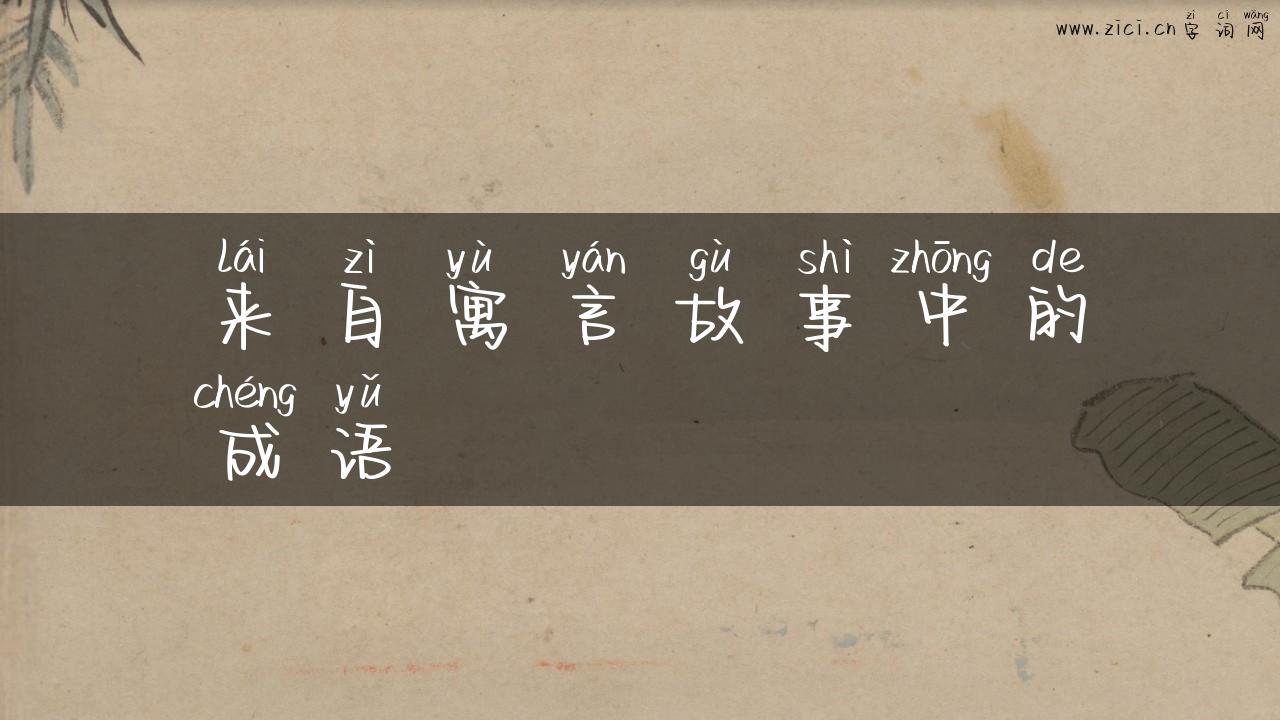 zì cí wǎng
www.zici.cn 字 词 网
lái zì yù yán gù shì zhōng de
来 自 寓 言 故 事 中 的
chéng yǔ
成 语